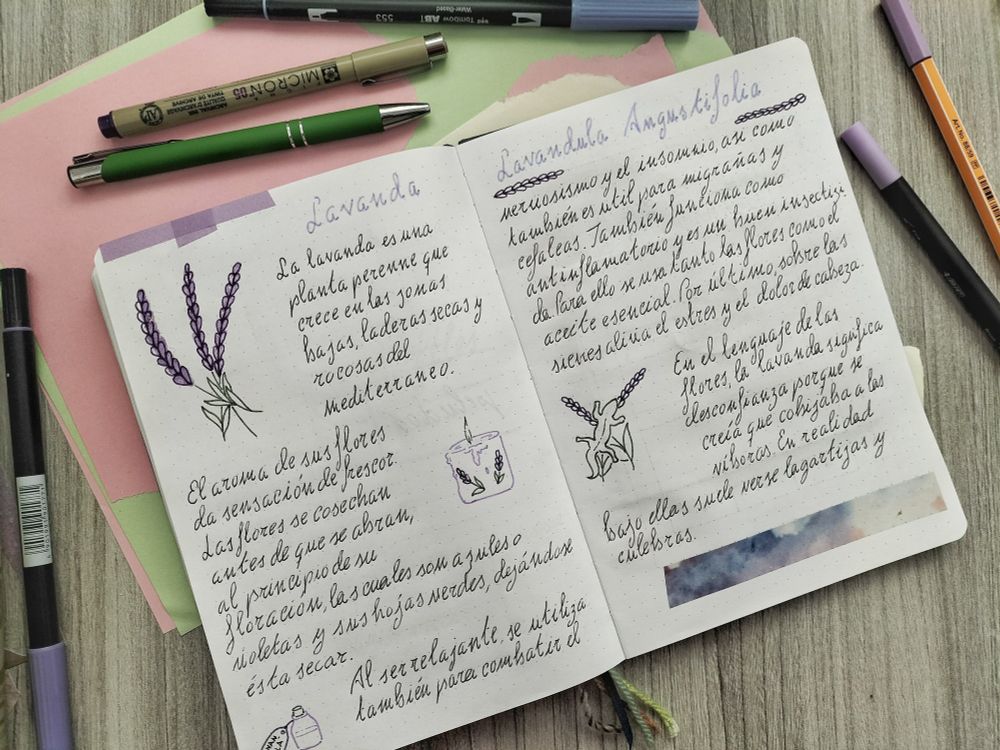 553 Tombow ABT
Water-Based
MICRON 05
ARCHIVAL INK
Lavanda
La lavanda es una
planta perenne que
crece en las sonas
bajas, laderas secas y
rocosas del
mediterraneo.
El aroma de sus flores
da sensación de frescor
Las flores se cosechan
antes de que se abran,
al principio de su
floración, las cuales son azules o
violetas y sus hojas verdes, dejándose
ésta secar.
Al ser relajante, se utiliza
también para combatir el
Lavandula Angustifolia
nerviosismo y el insomnio, así como
también es útil para migrañas y
cefaleas. También funciona como
antinflamatorio y es un buen insectici-
da. Para ello se usa tanto las flores como el
aceite esencial. Por último, sobre las
sienes alivia el estres y el dolor de cabeza.
En el lenguaje de las
flores, la lavanda significa
desconfianza porque se
creía que cobijaba a las
víboras. En realidad
Bajo ellas suele verse lagartijas y
culebras.